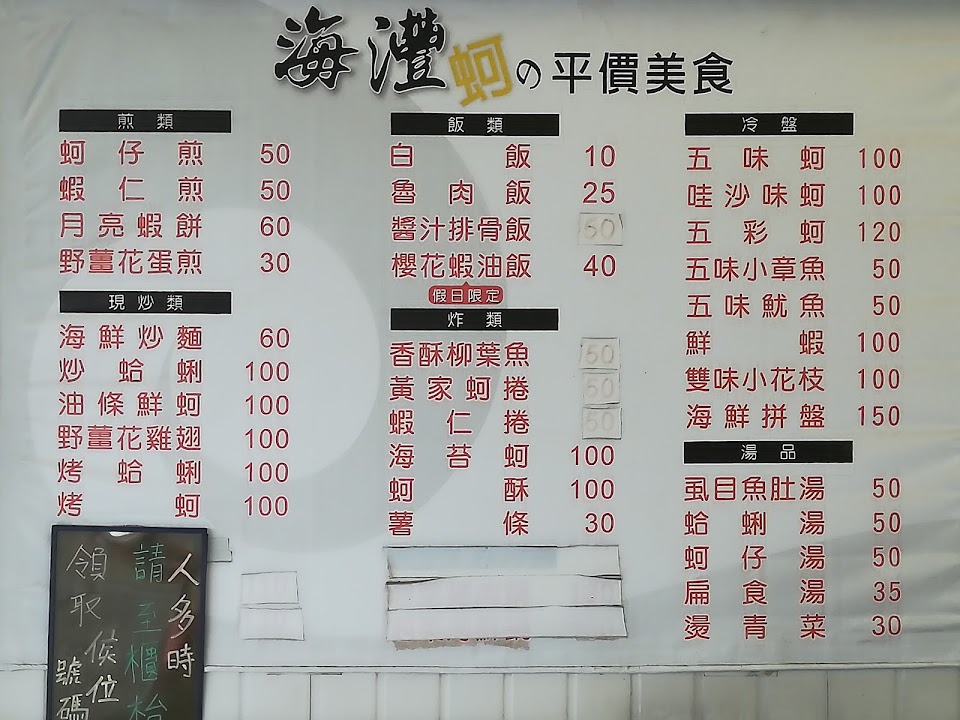 海灃蚵の平價美食
煎類
蚵仔煎 50
蝦仁煎 50
月亮蝦餅 60
野薑花蛋煎 30
現炒類
海鮮炒麵 60
炒蛤蜊 100
油條鮮蚵 100
野薑花雞翅 100
烤蛤蜊 100
烤蚵 100
飯類
白飯 10
魯肉飯 25
醬汁排骨飯 50
櫻花蝦油飯 40
假日限定
炸類
香酥柳葉魚 50
黃家蚵捲 50
蝦仁捲 50
海苔蚵 100
蚵酥 100
薯條 30
冷盤
五味蚵 100
哇沙味蚵 100
五彩蚵 120
五味小章魚 50
五味魷魚 50
鮮蝦 100
雙味小花枝 100
海鮮拼盤 150
湯品
虱目魚肚湯 50
蛤蜊湯 50
蚵仔湯 50
扁食湯 35
燙青菜 30
人多時
請至櫃枱
領取候位
號碼